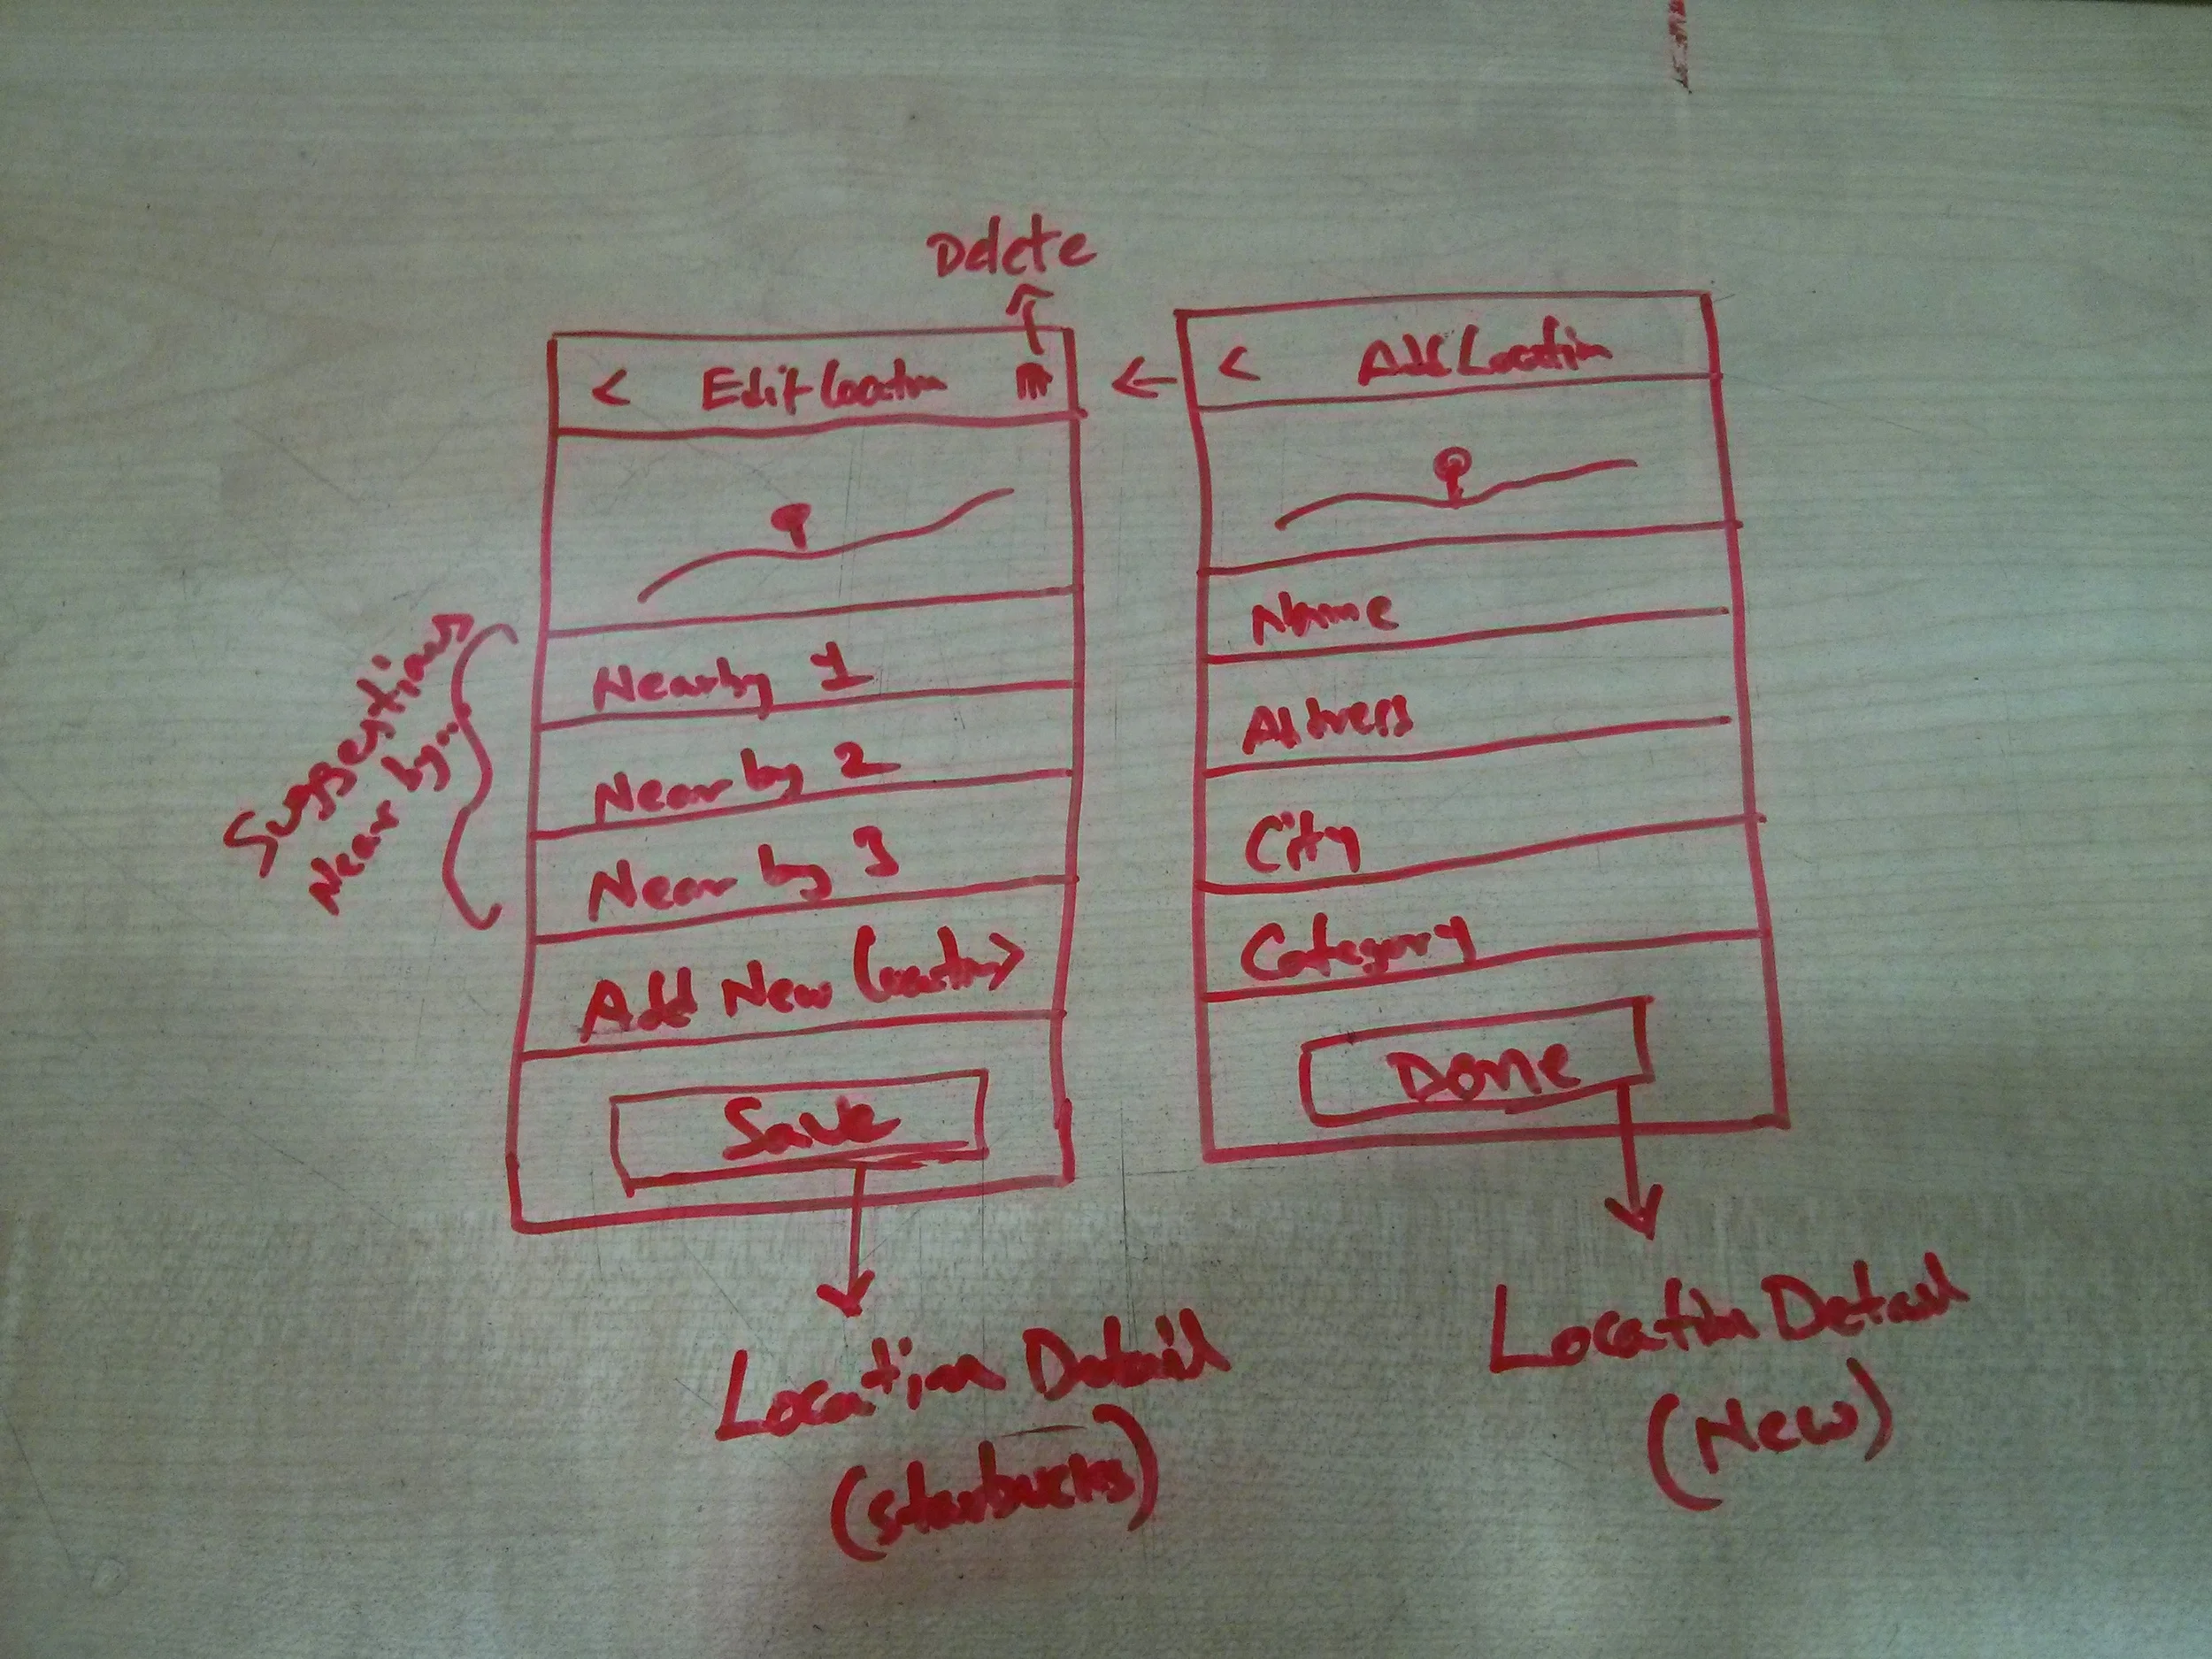 Delete
< Edit Location
Nearby 1
Near by 2
Near by 3
Add New Location >
Save
Suggestions
Near by...
Location Detail
(Starbucks)
< Add Location
Name
Address
City
Category
Done
Location Detail
(New)